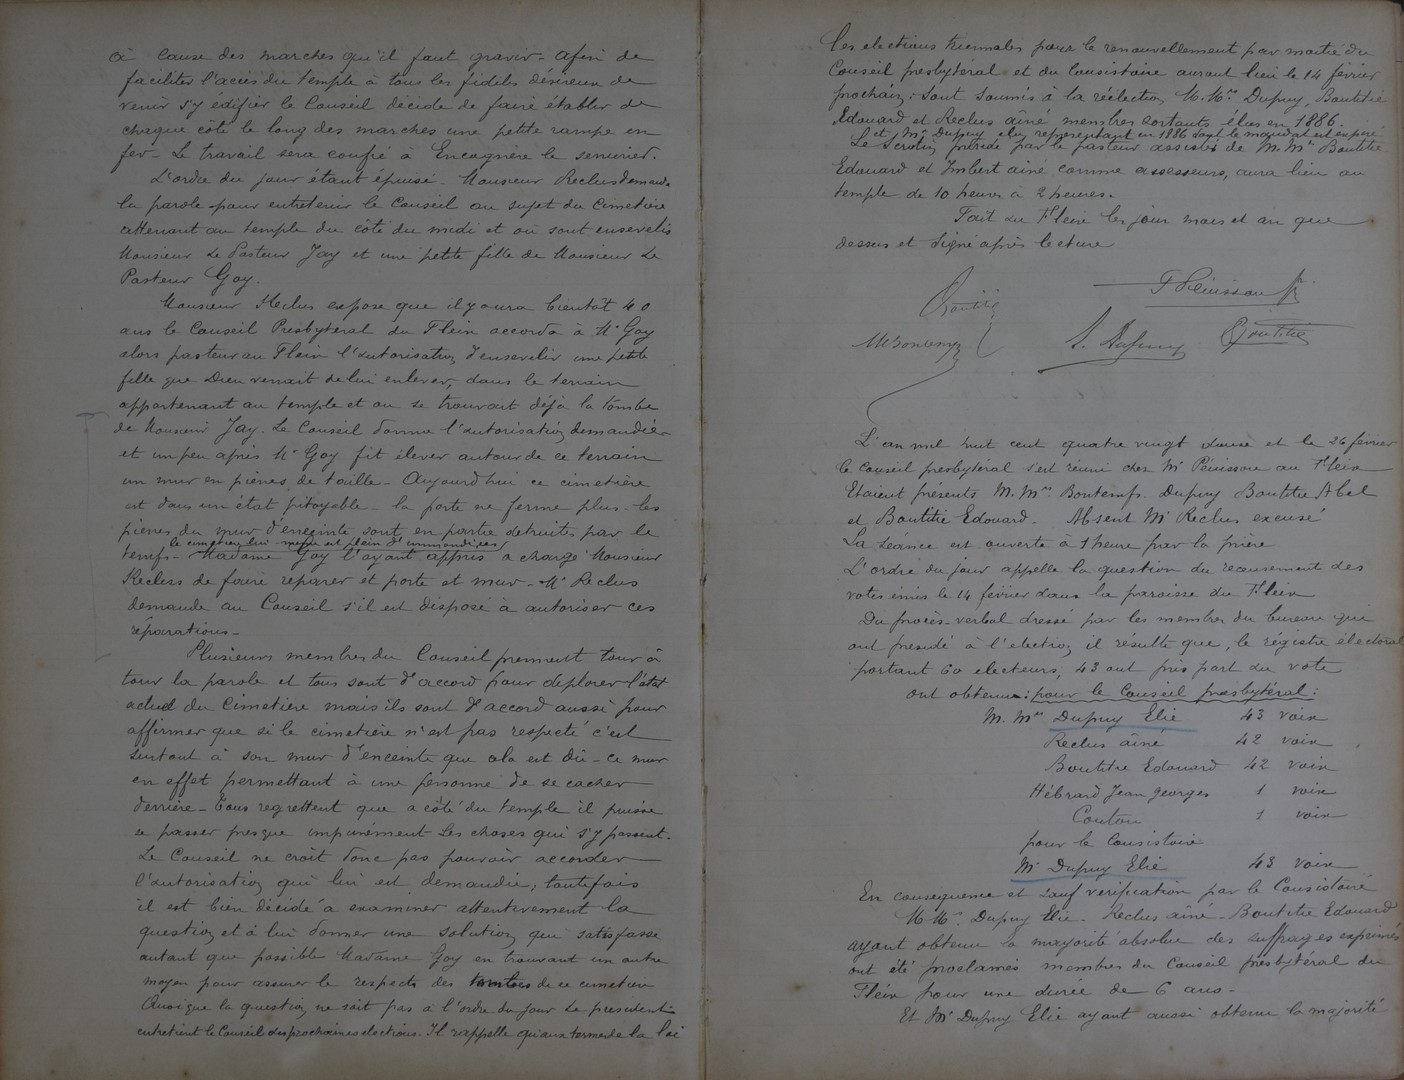 à cause des marches qu'il faut gravir - Afin de
faciliter l'accès du temple à tous les fidèles désireux de
venir s'y édifier le Conseil décide de faire établir de
chaque côté le long des marches une petite rampe en
fer - Le travail sera confié à Encognère le serrurier.
L'ordre du jour étant épuisé - Monsieur Reclus demande
la parole pour entretenir le Conseil au sujet du Cimetière
attenant au temple du côté du midi et où sont ensevelis
Monsieur Le Pasteur Jay et une petite fille de Monsieur Le
Pasteur Goy.
Monsieur Reclus expose que il y aura bientôt 40
ans le Conseil Presbytéral du Fleix accorda à Mr Goy
alors pasteur au Fleix l'autorisation d'ensevelir une petite
fille que Dieu venait de lui enlever, dans le terrain
appartenant au temple et ou se trouvait déjà la tombe
de Monsieur Jay. Le Conseil donne l'autorisation demandée
et un peu après Mr Goy fit élever autour de ce terrain
un mur en pierres de taille - Aujourd'hui ce cimetière
est dans un état pitoyable - la porte ne ferme plus - les
pierres du mur d'enceinte sont en partie détruits par le
le cimetière lui-même est plein d'immondices
temps - Madame Goy l'ayant appris a chargé Monsieur
Reclus de faire réparer et porte et mur - Mr Reclus
demande au Conseil s'il est disposé à autoriser ces
réparations -
Plusieurs membres du Conseil prennent tour à
tour la parole et tous sont d'accord pour déplorer l'état
actuel du Cimetière mais ils sont d'accord aussi pour
affirmer que si le cimetière n'est pas respecté c'est
surtout à son mur d'enceinte que cela est dû - ce mur
en effet permettant à une personne de se cacher
derrière - Tous regrettent que a côté du temple il puisse
se passer presque impunément les choses qui s'y passent.
Le Conseil ne croit donc pas pouvoir accorder
l'autorisation qui lui est demandée, toutefois
il est bien décidé à examiner attentivement la
question et à lui donner une solution qui satisfasse
autant que possible Madame Goy en trouvant un autre
moyen pour assurer le respects des tombes de ce cimetière
Quoique la question ne soit pas à l'ordre du jour Le président
entretient le Conseil des prochaines elections. Il rappelle qu'aux termes de la loi
les elections triennales pour le renouvellement par moitié du
Conseil presbytéral et du Consistoire auront lieu le 14 février
prochain : sont soumis à la réélection M.Mrs Dupuy, Boutitie
Edouard et Reclus ainé, membres sortants élus en 1886.
et Mr Dupuy élu représentant en 1886 dont le mandat est expiré
Le Scrutin présidé par le pasteur assisté de M.Mrs Boutitie
Edouard et Imbert ainé, comme assesseurs, aura lieu au
temple de 10 heures à 2 heures.
Fait au Fleix les jour mois et an que
dessus et signé après lecture
Boutitie
F Pénissou
M Bontemps
E. Dupuy
Boutitie
L'an mil huit cent quatre vingt douze et le 26 février
le Conseil presbytéral s'est réuni chez Mr Pénissou au Fleix
Etaient présents M.Mrs Bontemps. Dupuy Boutitie Abel
et Boutitie Edouard - Absent Mr Reclus excusé
La séance est ouverte à 1 heure par la prière
L'ordre du jour appelle la question du recensement des
votes émis le 14 février dans la paroisse du Fleix
Du procès-verbal dressé par les membres du bureau qui
ont présidé à l'election il résulte que, le régistre électoral
portant 60 électeurs, 43 ont pris part au vote
ont obtenu : pour le Conseil presbytéral :
M. Mrs Dupuy Elie 43 voix
Reclus ainé 42 voix
Boutitie Edouard 42 voix
Hébrard Jean Georges 1 voix
Coutou 1 voix
pour le Consistoire
Mr Dupuy Elie 43 voix
En conséquence et sauf vérification par le Consistoire
M.Mrs Dupuy Elie - Reclus ainé - Boutitie Edouard
ayant obtenu la majorité absolue des suffrages exprimés
ont été proclamés membres du Conseil presbytéral du
Fleix pour une durée de 6 ans -
Et Mr Dupuy Elie ayant aussi obtenu la majorité